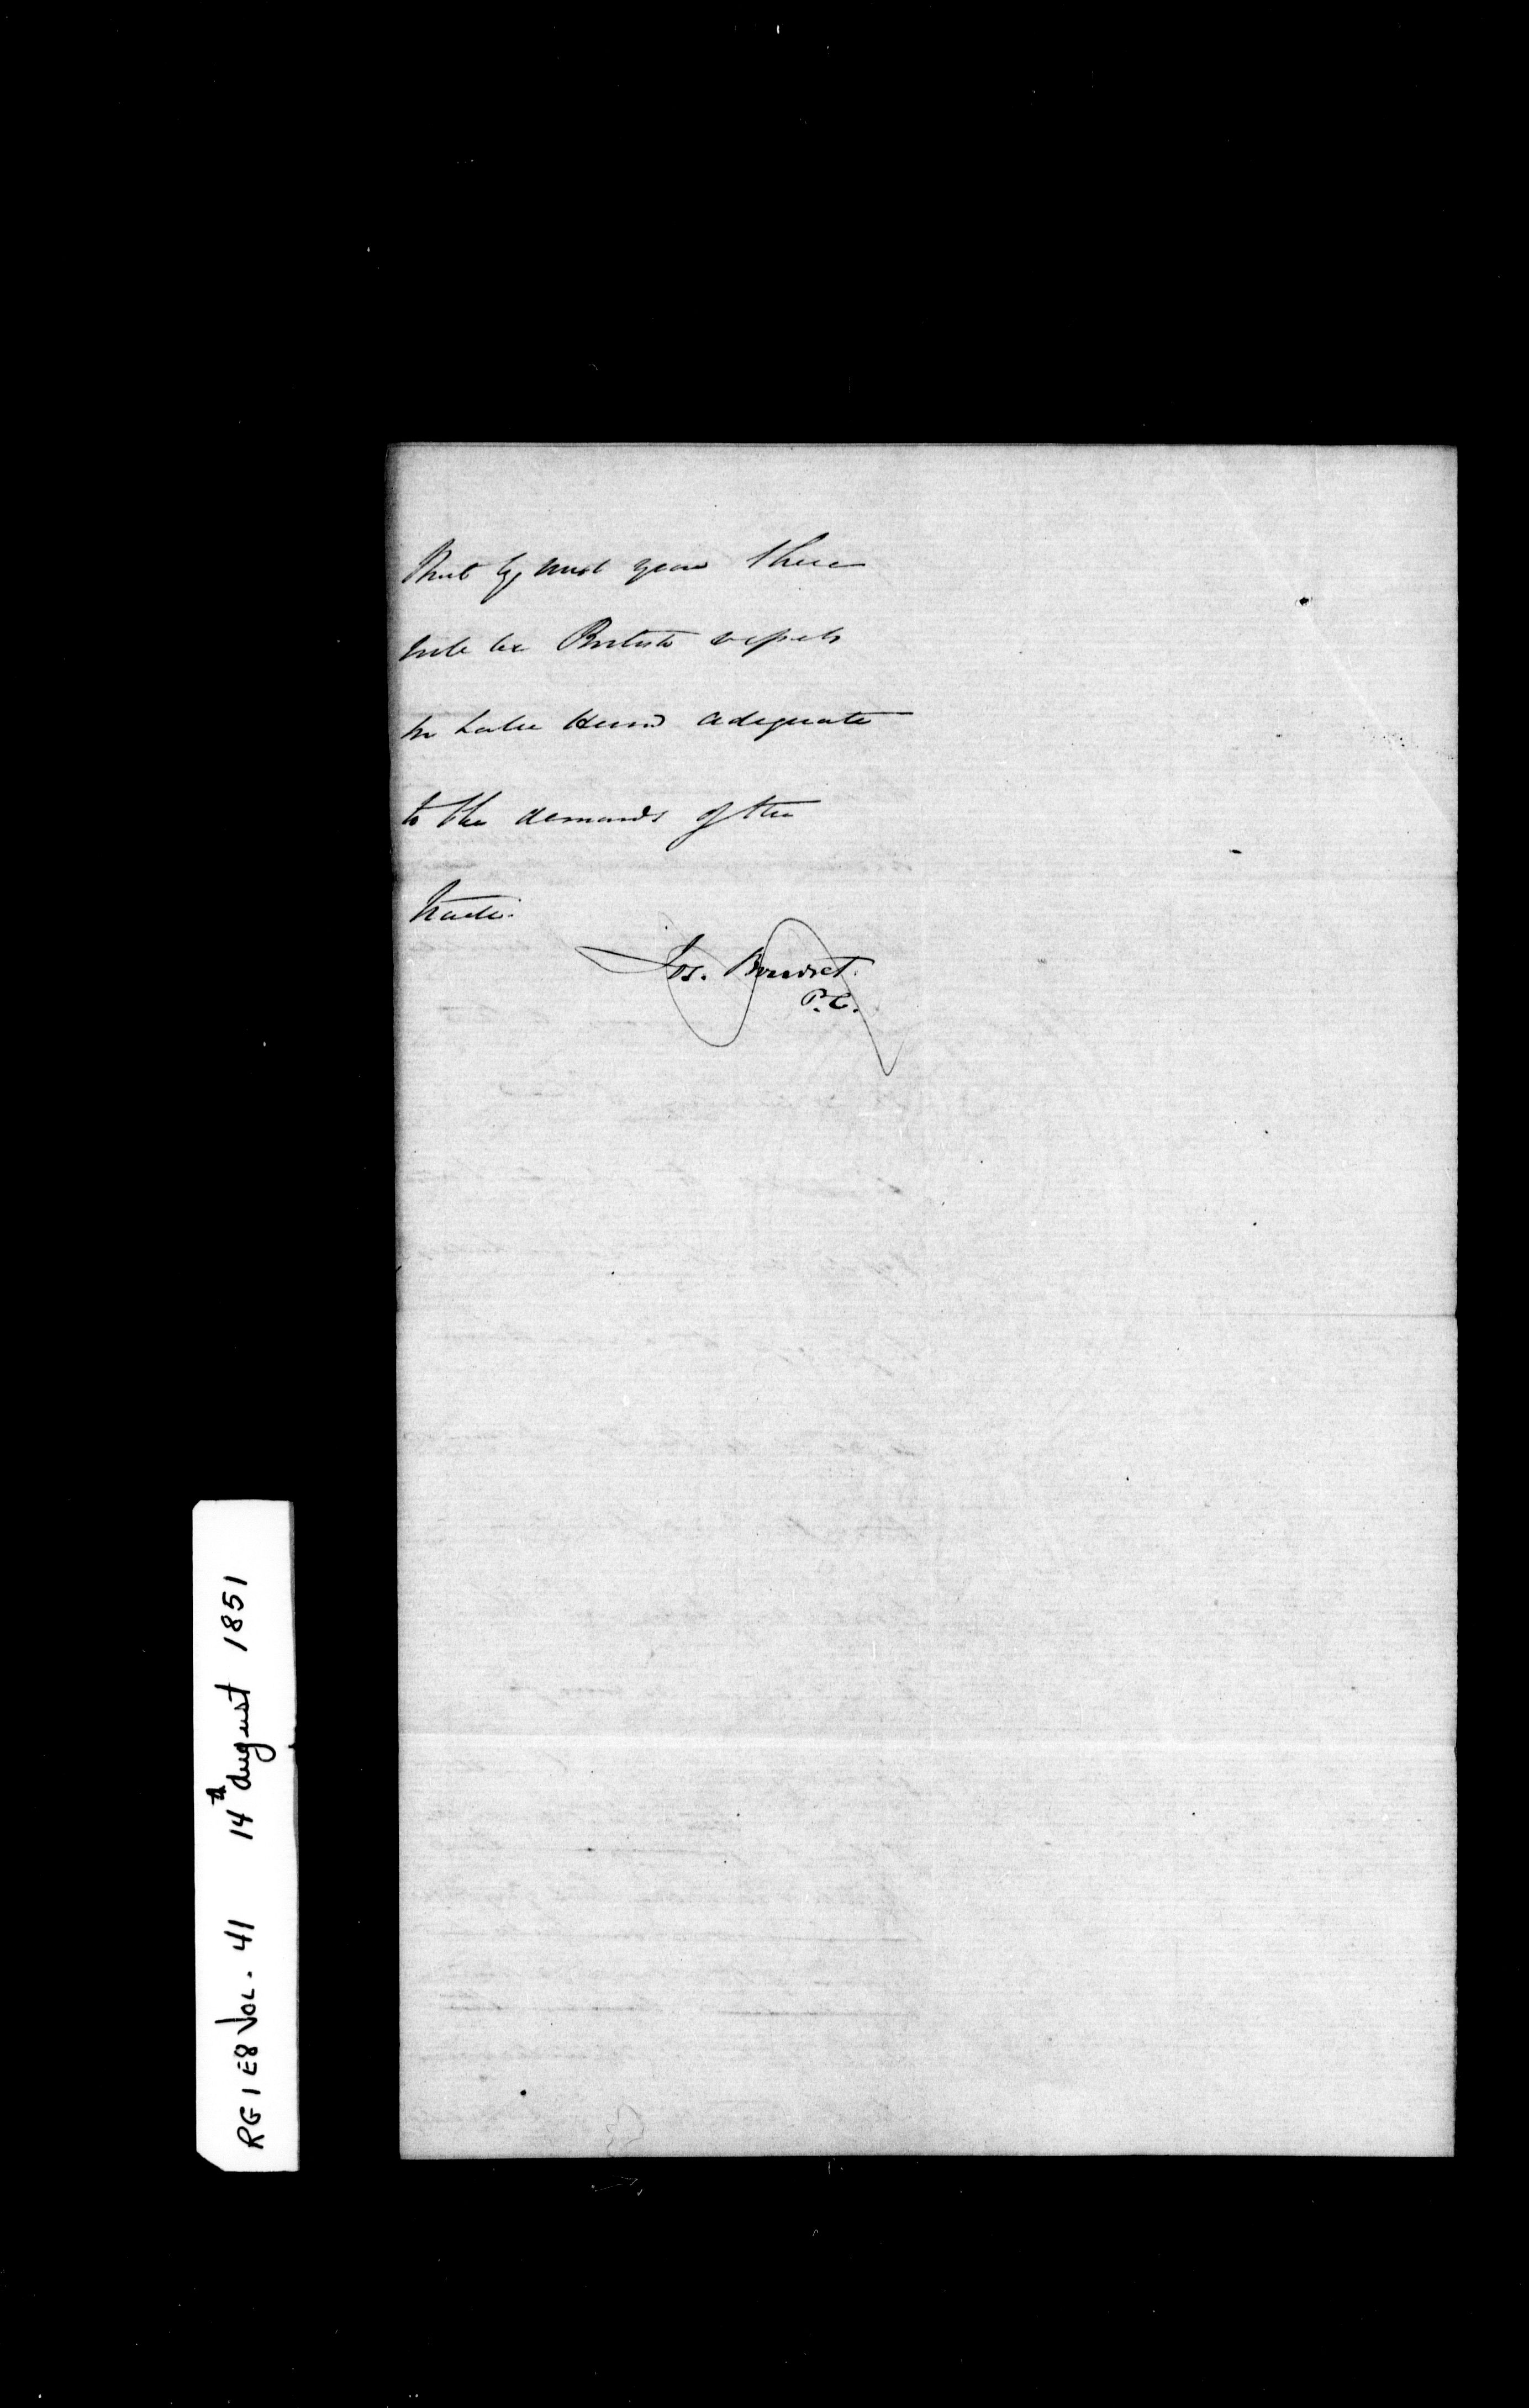 that by next year there
will be British vessels
in Lake Huron adequate
to the demands of the
trade.
Jos. Bourret.
P.C.
RG 1 E8 VOL. 41 14th August 1851